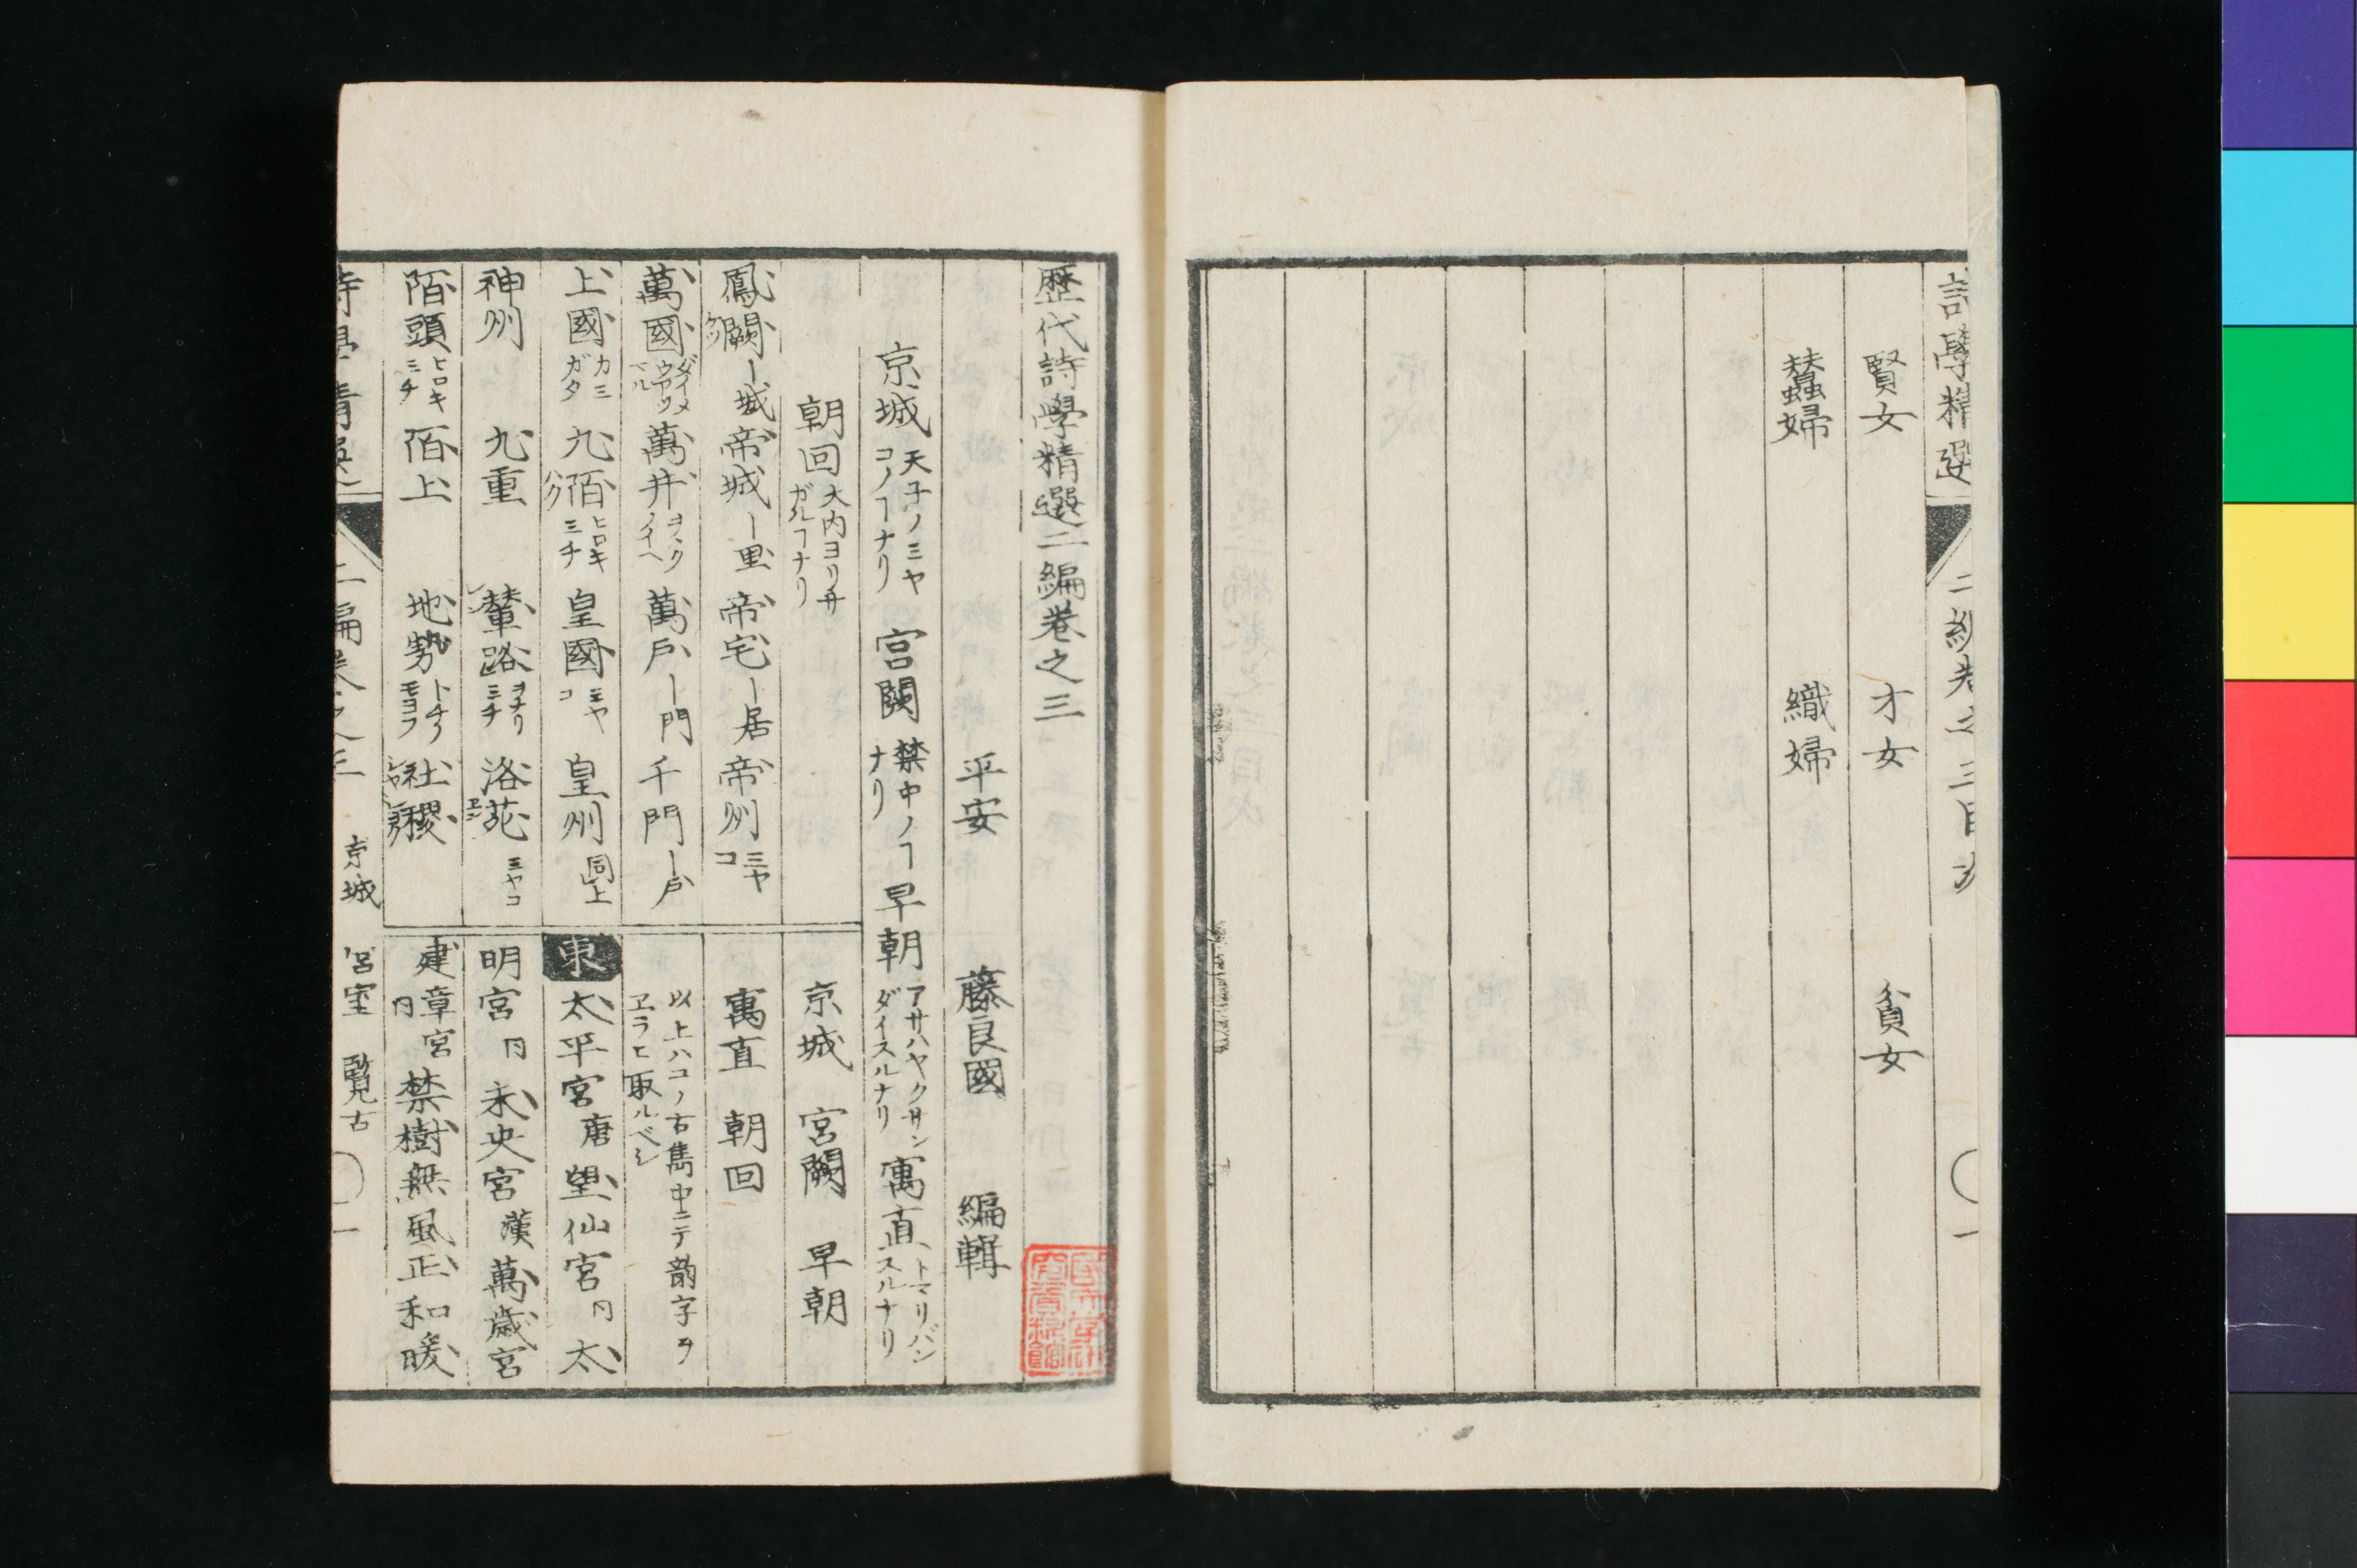 詩學精選 二編卷之三目次 一
賢女 才女 貧女
蠶婦 織婦
歷代詩學精選二編卷之三
平安 藤良國 編輯
京城 天子ノミヤコノヿナリ 宮闕 禁中ノヿナリ 早朝 アサハヤクサンダイスルナリ 寓直 トマリバンスルナリ
朝回 大内ヨリサガルヿナリ
鳳闕 ケツ ー城 帝城 ー里 帝宅 ー居 帝州 ミヤコ
萬國 萬井 ヲヽクノイヘ 萬戶 ー門 千門 ー戶
上國 カミガタ 九陌 ヒロキミチ 皇國 ミヤコ 皇州 同上
神州 九重 輦路 ヲナリミチ 洛苑 ミヤコ
陌頭 ヒロキミチ 陌上 地勢 トチノモヨフ 社稷
京城 宮闕 早朝
寓直 朝回
以上ハコノ古雋中ニテ韵字ヲヱラヒ取ルベシ
東 太平宮 唐 望仙宮 同 太
明宮 同 未央宮 漢 萬歲宮
建章宮 同 禁樹無風正和暖
詩學精選 二編卷之三 京城 宮室 覽古 一